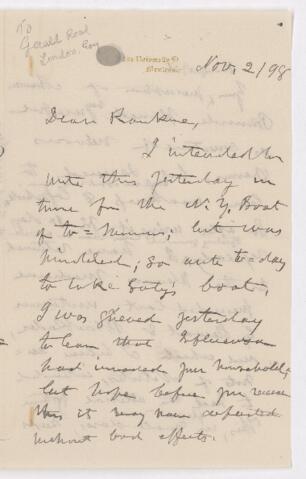 To
Gerald Road
London, Eng
University St
Montreal
Nov, 2/98
Dear
I intended to
write this yesterday in
time for the N. Y. Boat
of to=morrow; but was
hindered; so write to=day
to take Saty's boat.
I was grieved yesterday
to learn that Influenza
had invaded your household,
but hope before you receive
this it may have departed
without bad effects.